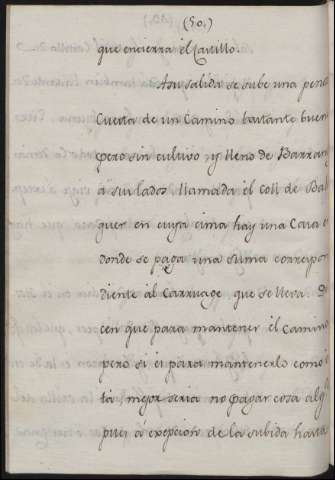 (50.)
que encierra el Castillo.
Asu salida se sube una pend
Cuesta de un Camino bastante buen
pero sin cultivo, y lleno de Barran
á sus lados llamada el coll de Ba
guer en cuya cima hay una Casa
donde se paga una suma correspon
diente al Carruage que se lleva. D
cen que para mantener el Camino
pero si es para mantenerlo como
ta mejor seria no pagar cosa alg
pues á exepcion de la subida hasta